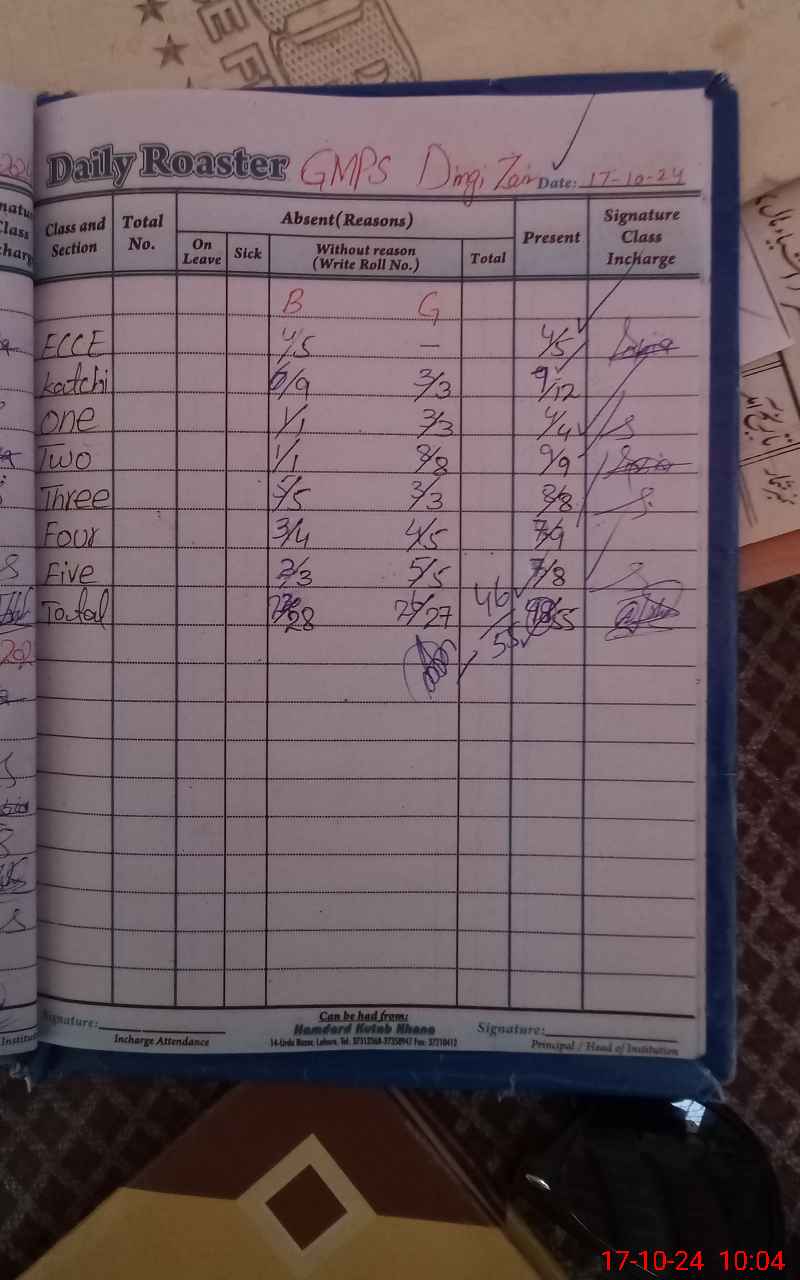 Daily Roaster GMPS Dingi Zain Date: 17-10-24
Class and Section Total No. Absent(Reasons) Present Signature Class Incharge
On Leave Sick Without reason (Write Roll No.) Total
B G
ECCE 4/5 — 4/5
Katchi 6/9 3/3 9/12
One 1/1 3/3 4/4
Two 1/1 8/8 9/9
Three 5/5 3/3 8/8
Four 3/4 4/5 7/9
Five 2/3 5/5 7/8
Toatal /28 /27 46/55 /55
Signature: Can be had from: Signature:
Incharge Attendance Hamdard Kutab Khana Principal / Head of Institution
14-Urdu Bazar, Lahore.
17-10-24 10:04